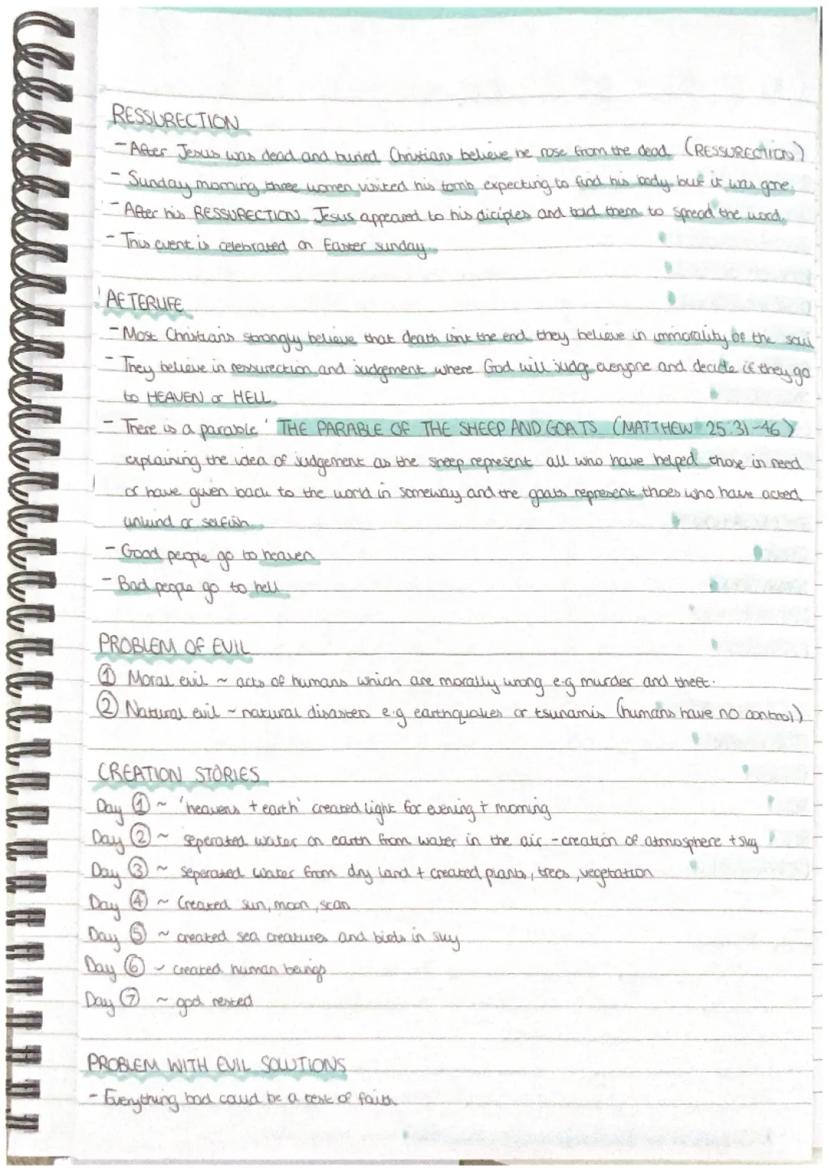 RESSURECTION
- After Jesus was dead and buried Christians believe he rose from the dead (RESSURECTION)
- Sunday morning three women visited his tomb expecting to find his body but it was gone.
- After his RESSURECTION Jesus appeared to his diciples and told them to spread the word.
- This event is celebrated on Easter sunday.
AFTERLIFE
- Most Christians strongly believe that death isnt the end they believe in immorality of the soul
- They believe in ressurection and judgement where God will judge everyone and decide if they go
to HEAVEN or HELL
- There is a parable ' THE PARABLE OF THE SHEEP AND GOATS (MATTHEW 25:31-46)
explaining the idea of judgement as the sheep represent all who have helped those in need
or have given back to the world in someway and the goats represent thoes who have acted
unkind or selfish
- Good people go to heaven
- Bad people go to hell
PROBLEM OF EVIL
① Moral evil ~ acts of humans which are morally wrong e.g murder and theft.
② Natural evil ~ natural disasters e.g earthquakes or tsunamis (humans have no control)
CREATION STORIES
Day ① ~ 'heavens + earth' created light for evening + morning
Day ② ~ seperated water on earth from water in the air - creation of atmosphere + sky
Day ③ ~ seperated water from dry land + created plants, trees, vegetation
Day ④ ~ Created sun, moon, stars
Day ⑤ ~ created sea creatures and birds in sky
Day ⑥ ~ created human beings
Day ⑦ ~ god rested
PROBLEM WITH EVIL SOLUTIONS
- Everything bad could be a test of faith